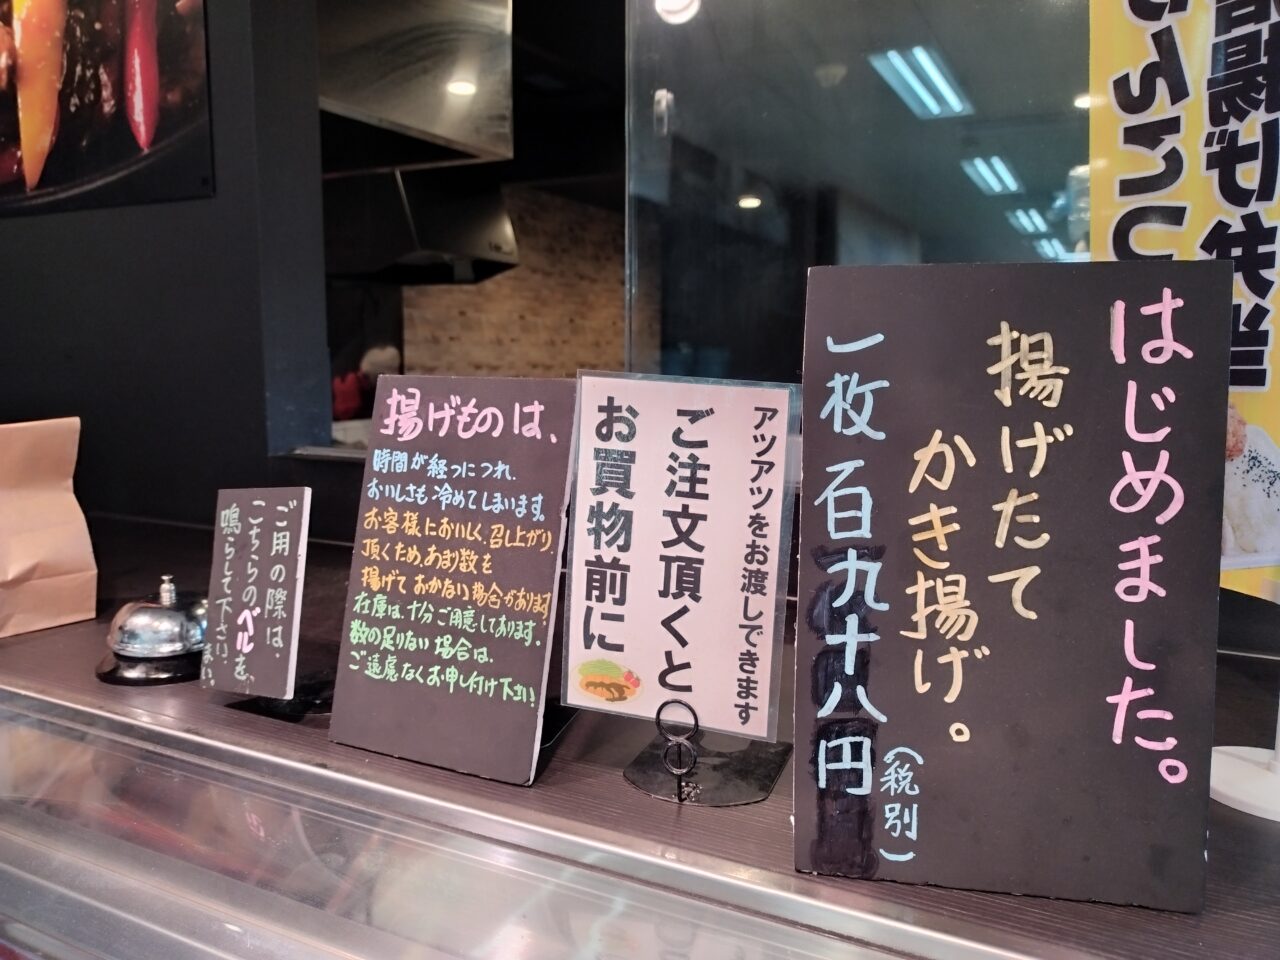 はじめました。
揚げたて
かき揚げ。
一枚百九十八円
(税別)
お買物前に
ご注文頂くと
アツアツをお渡しできます
揚げものは、
時間が経つにつれ、
おいしさも冷めてしまいます。
お客様においしく、召し上がり、
頂くため、あまり数を
揚げておかない場合があります。
在庫は、十分ご用意してあります。
数の足りない場合は、
ご遠慮なくお申し付け下さい!
ご用の際は、
こちらのベルを、
鳴らして下さい。
揚げ弁当